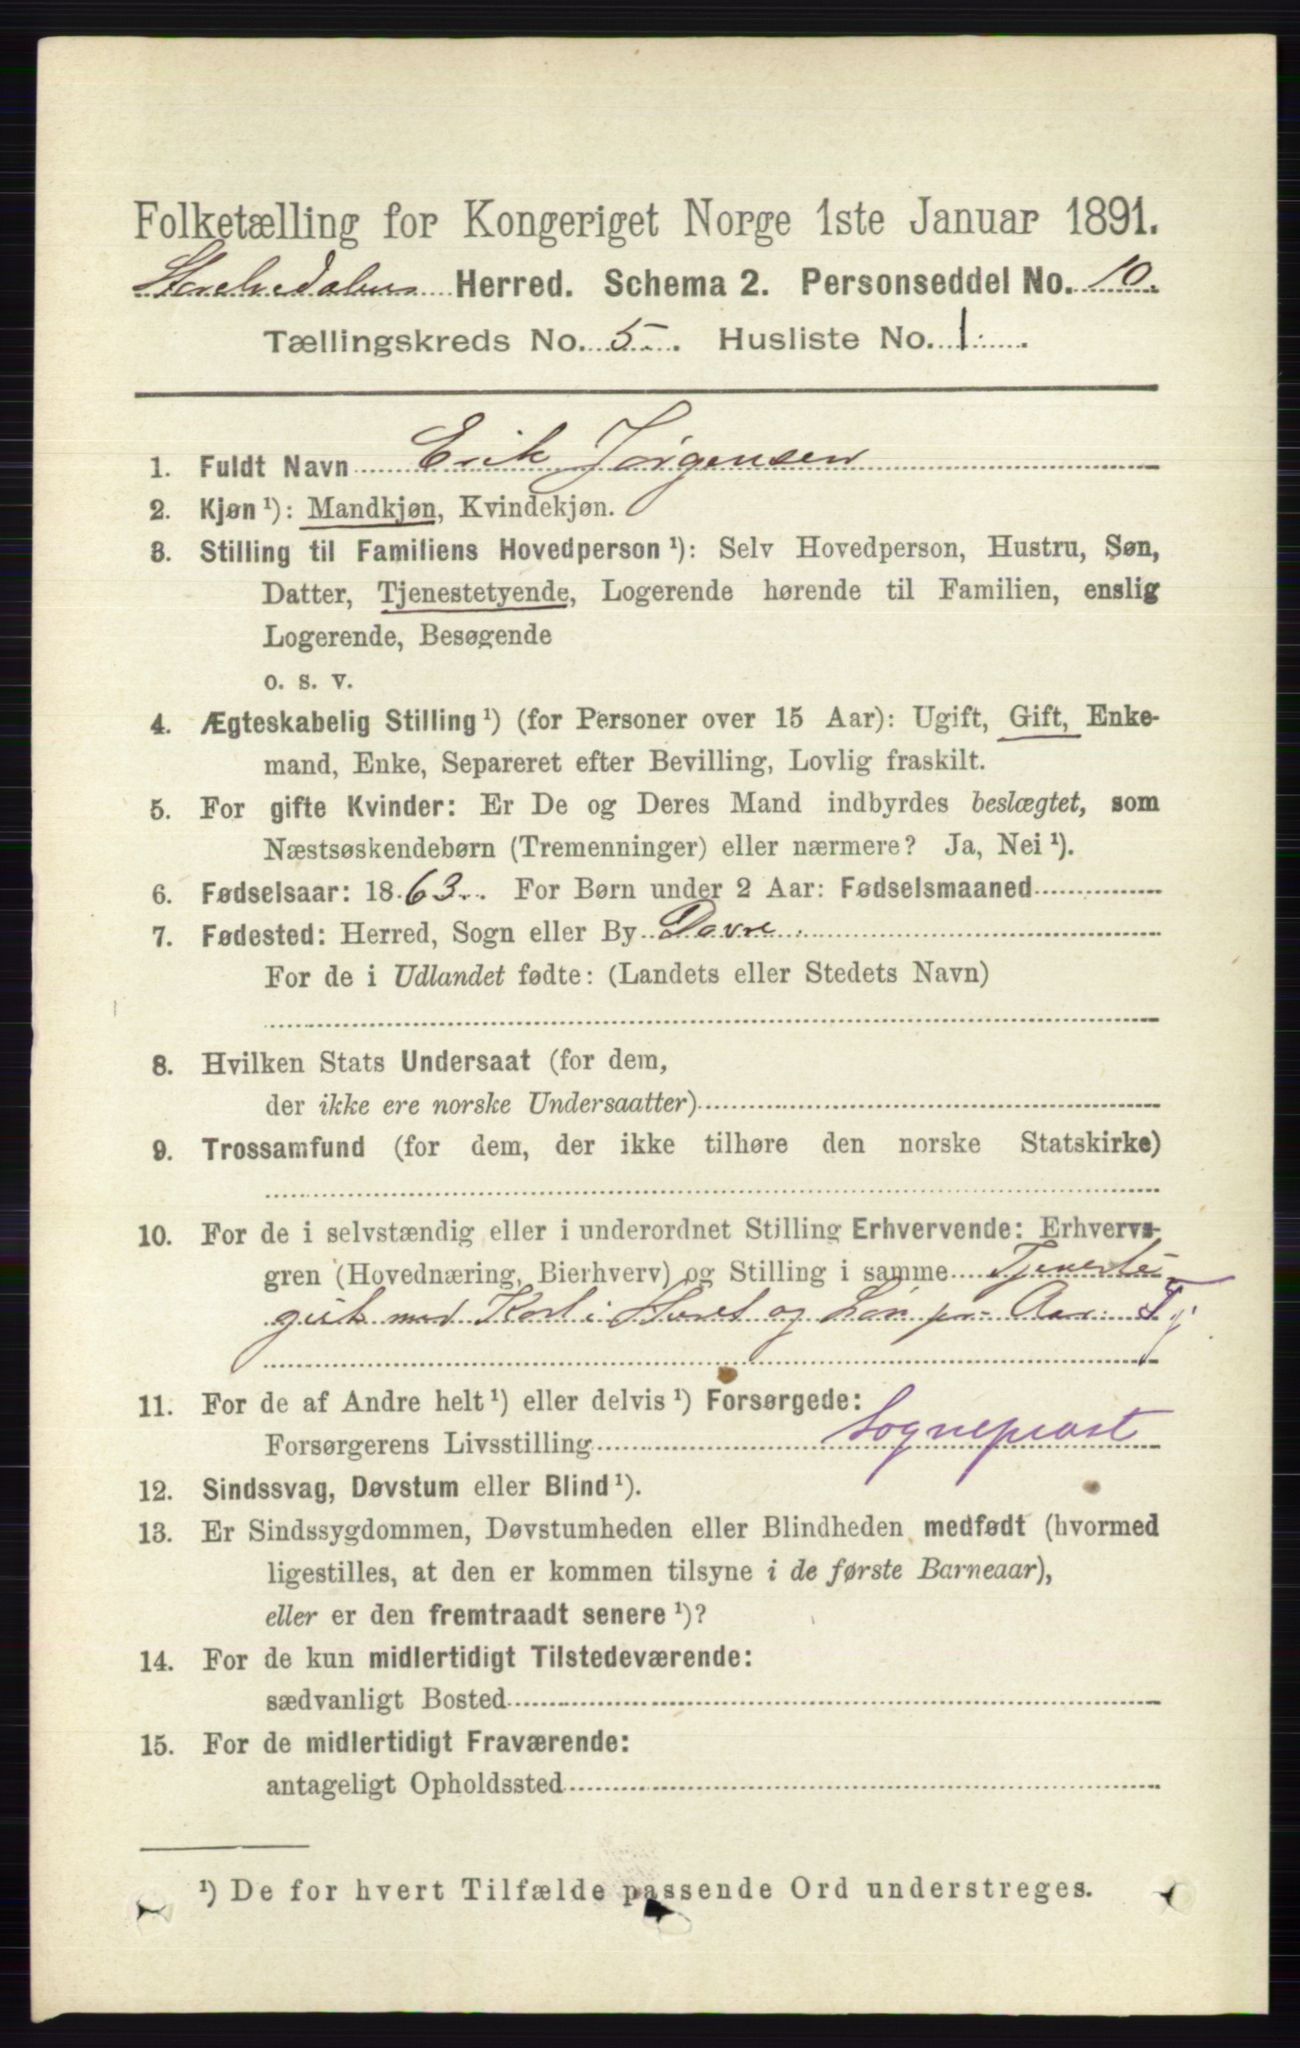 Folketælling for Kongeriget Norge 1ste Januar 1891.
Herred. Schema 2. Personseddel No. 10.
Tællingskreds No. 5. Husliste No. 1.
1. Fuldt Navn Erik Jørgensen
2. Kjøn¹): Mandkjøn, Kvindekjøn.
3. Stilling til Familiens Hovedperson¹): Selv Hovedperson, Hustru, Søn,
Datter, Tjenestetyende, Logerende hørende til Familien, enslig
Logerende, Besøgende
o. s. v.
4. Ægteskabelig Stilling¹) (for Personer over 15 Aar): Ugift, Gift, Enke-
mand, Enke, Separeret efter Bevilling, Lovlig fraskilt.
5. For gifte Kvinder: Er De og Deres Mand indbyrdes beslægtet, som
Næstsøskendebørn (Tremenninger) eller nærmere? Ja, Nei¹).
6. Fødselsaar: 1863. For Børn under 2 Aar: Fødselsmaaned
7. Fødested: Herred, Sogn eller By Dovre
For de i Udlandet fødte: (Landets eller Stedets Navn)
8. Hvilken Stats Undersaat (for dem,
der ikke ere norske Undersaatter)
9. Trossamfund (for dem, der ikke tilhøre den norske Statskirke)
10. For de i selvstændig eller i underordnet Stilling Erhvervende: Erhvervs-
gren (Hovednæring, Bierhverv) og Stilling i samme Tjeneste-
gut med Kost i Huset og Løn pr. Aar. Tj
11. For de af Andre helt¹) eller delvis¹) Forsørgede:
Forsørgerens Livsstilling Sogneprest
12. Sindssvag, Døvstum eller Blind¹).
13. Er Sindssygdommen, Døvstumheden eller Blindheden medfødt (hvormed
ligestilles, at den er kommen tilsyne i de første Barneaar),
eller er den fremtraadt senere¹)?
14. For de kun midlertidigt Tilstedeværende:
sædvanligt Bosted
15. For de midlertidigt Fraværende:
antageligt Opholdssted
¹) De for hvert Tilfælde passende Ord understreges.